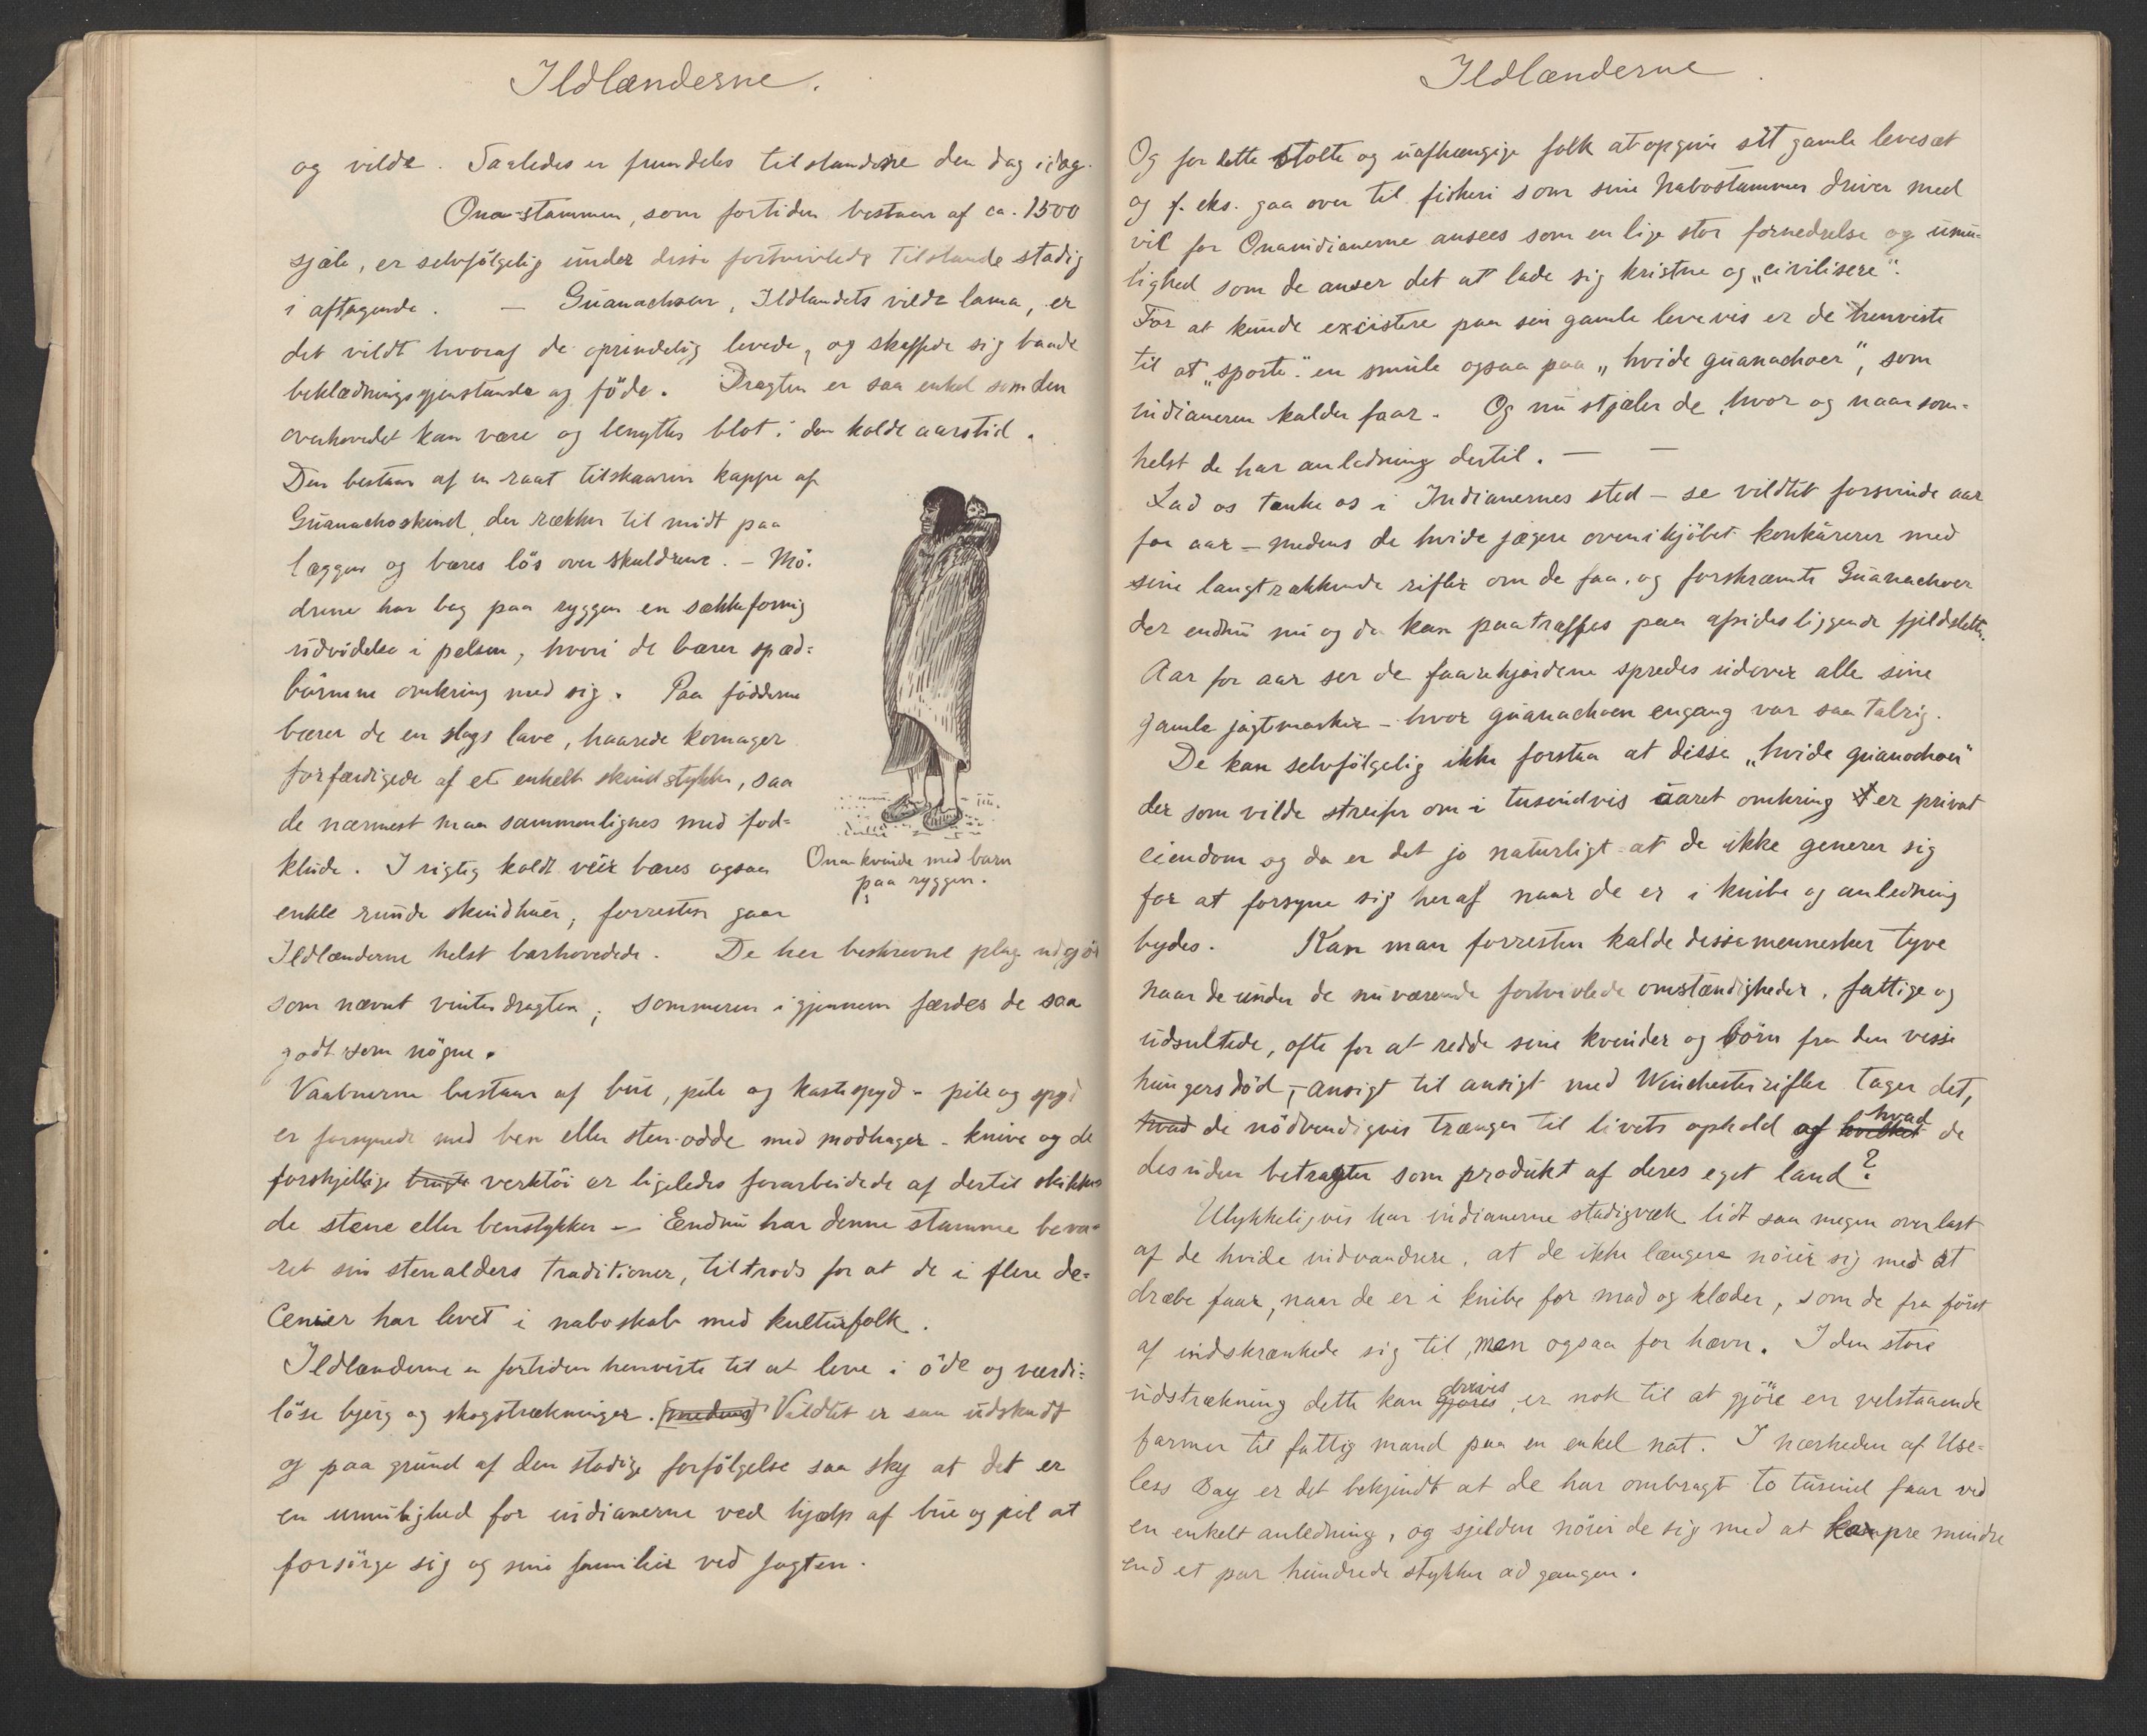 Ildlænderne.
og vilde. Saaledes er fremdeles tilstandene den dag idag.
Ona-stammen, som fortiden bestaar af ca. 1500
sjæle, er selvfölgelig under disse fortvivlede tilstande stadig
i aftagende. — Guanachoen, Ildlandets vilde lama, er
det vildt hvoraf de oprindelig levede, og skaffede sig baade
beklædningsgjenstande og föde. Dragten er saa enkel som den
overhovedet kan være og benyttes blot i den kolde aarstid.
Den bestaar af en raat tilskaaren kappe af
Guanachoskind, der rækker til midt paa
læggen og bæres lös over skuldrene. – Mö-
drene har bag paa ryggen en sækkeformig
udvidelse i pelsen, hvori de bærer spæd-
börnene omkring med sig. Paa födderne
bærer de en slags lave, haarede komager
forfærdigede af et enkelt skindstykke, saa
de nærmest maa sammenlignes med fod-
klude. I rigtig koldt veir bæres ogsaa
enkle runde skindhuer, forresten gaar
Ildlænderne helst barhovedede. De her beskrevne plag udgjör
som nævnt vinterdragten; sommeren igjennem færdes de saa
godt som nögne.
Ona-kvinde med barn
paa ryggen.
Vaabnerne bestaar af bue, pile og kastespyd – pile og spyd
er forsynede med ben eller sten-odde med modhager – knive og de
forskjellige brugte verktöi er ligeledes forarbeidede af dertil skikke-
de stene eller benstykker – Endnu har denne stamme beva-
ret sin stenalders traditioner, tiltrods for at de i flere de-
cenier har levet i naboskab med kulturfolk.
Ildlænderne er fortiden henviste til at leve i öde og værdi-
löse bjerg og skogstrækninger. [medens] Vildtet er saa udskudt
og paa grund af den stadige forfölgelse saa sky at det er
en umulighed for indianerne ved hjælp af bue og pil at
forsörge sig og sine familier ved jagten.
Ildlænderne.
Og for dette stolte og uafhængige folk at opgive sit gamle levesæt
og f. eks. gaa over til fiskeri som sine nabostammer driver med
vil for Onaindianerne ansees som en lige stor fornedrelse og umu-
lighed som de anser det at lade sig kristne og „civilisere".
For at kunde excistere paa sin gamle levevis er de henviste
til at „sporte" en smule ogsaa paa „hvide guanachoer", som
indianeren kalder faar. Og nu stjæler de, hvor og naar som-
helst de har anledning dertil. — —
Lad os tænke os i Indianernes sted – se vildtet forsvinde aar
for aar – medens de hvide jægere ovenikjöbet konkurerer med
sine langtrækkende rifler om de faa, og forskræmte Guanachoer
der endnu nu og da kan paatræffes paa afsidesliggende fjeldsletter.
Aar for aar ser de faarehjordene spredes udover alle sine
gamle jagtmarker – hvor guanachoen engang var saa talrig.
De kan selvfölgelig ikke forstaa at disse „hvide guanachoer"
der som vilde streifer om i tusindvis aaret omkring er privat
eiendom og da er det jo naturligt at de ikke generer sig
for at forsyne sig heraf naar de er i knibe og anledning
bydes. Kan man forresten kalde disse mennesker tyve
naar de under de nuværende fortvivlede omstændigheder, fattige og
udsultede, ofte for at redde sine kvinder og börn fra den visse
hungersdöd, – ansigt til ansigt med Winchesterrifler tager det,
hvad de nödvendigvis trænger til livets ophold af hvilket hvad de
desuden betragter som produkt af deres eget land?
Ulykkeligvis har indianerne stadigvæk lidt saa megen overlast
af de hvide indvandrere, at de ikke længere nöier sig med at
dræbe faar, naar de er i knibe for mad og klæder, som de fra först
af indskrænkede sig til, men ogsaa for hævn. I den store
udstrækning dette kan gjöres drives er nok til at gjöre en velstaaende
farmer til fattig mand paa en enkel nat. I nærheden af Use-
less Bay er det bekjendt at de har ombragt to tusind faar ved
en enkelt anledning, og sjelden nöier de sig med at kapre mindre
end et par hundrede stykker ad gangen.